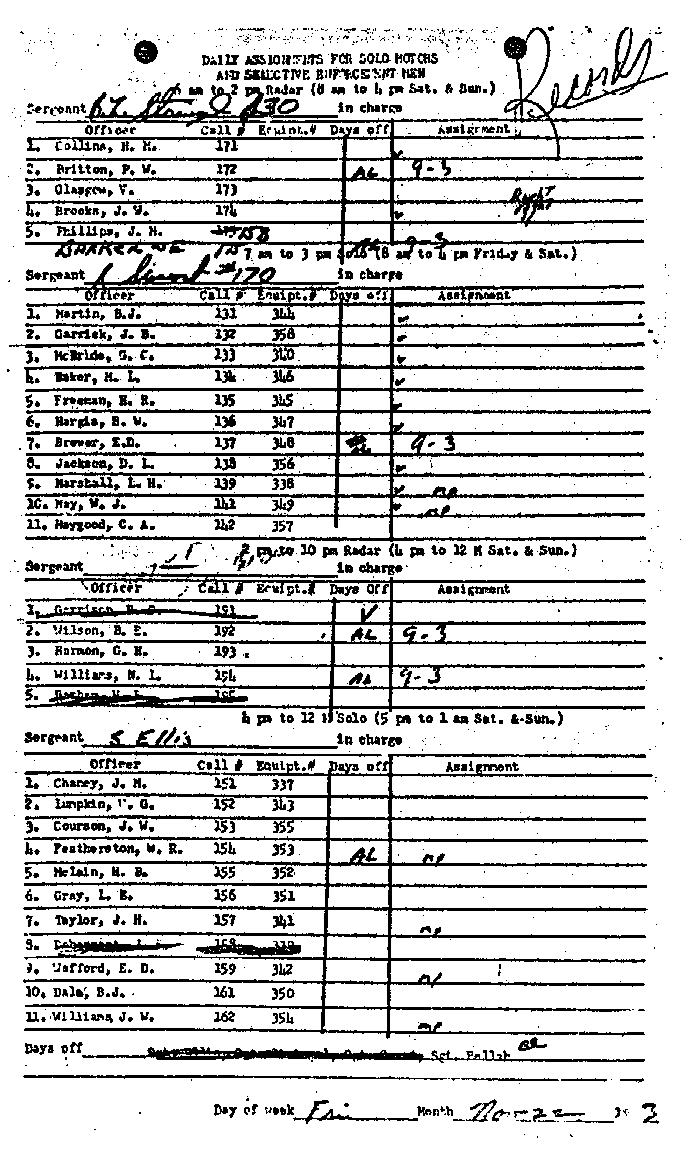 Records
DAILY ASSIGNMENTS FOR SOLO MOTORS
AND SELECTIVE ENFORCEMENT MEN
6 am to 2 pm Radar (8 am to 4 pm Sat. & Sun.)
Sergeant 130 in charge
Officer Call # Equipt.# Days off Assignment
1. Collins, H. M. 171
2. Britton, P. W. 172 AL 9-3
3. Glasgow, V. 173
4. Brooks, J. W. 174
5. Phillips, J. H. 158
7 am to 3 pm Solo (8 am to 4 pm Friday & Sat.)
Sergeant #170 in charge
Officer Call # Equipt.# Days off Assignment
1. Martin, B.J. 131 344
2. Garrick, J. B. 132 358
3. McBride, G. C. 133 340
4. Baker, M. L. 134 346
5. Freeman, H. R. 135 345
6. Hargis, B. W. 136 347
7. Brewer, E.D. 137 348 9-3
8. Jackson, D. L. 138 356
9. Marshall, L. H. 139 338 mp
10. May, W. J. 141 349 mp
11. Haygood, C. A. 142 357
2 pm to 10 pm Radar (4 pm to 12 M Sat. & Sun.)
Sergeant in charge
Officer Call # Equipt.# Days Off Assignment
1. 191 V
2. Wilson, B. E. 192 AL 9-3
3. Harmon, G. H. 193
4. Williams, N. L. 194 AL 9-3
5. 195
4 pm to 12 M Solo (5 pm to 1 am Sat. & Sun.)
Sergeant S Ellis in charge
Officer Call # Equipt.# Days off Assignment
1. Chaney, J. M. 151 337
2. Lumpkin, W. G. 152 343
3. Courson, J. W. 153 355
4. Featherston, W. R. 154 353 AL mp
5. McLain, H. B. 155 352
6. Gray, L. E. 156 351
7. Taylor, J. H. 157 341 mp
8. 158
9. Wafford, E. D. 159 342 mp
10. Dale, B.J. 161 350
11. Williams, J. W. 162 354 mp
Days off Sgt. Bellah
Day of week Fri Month Nov-22 19 3